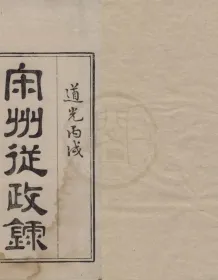 道光丙戌
宋州從政錄